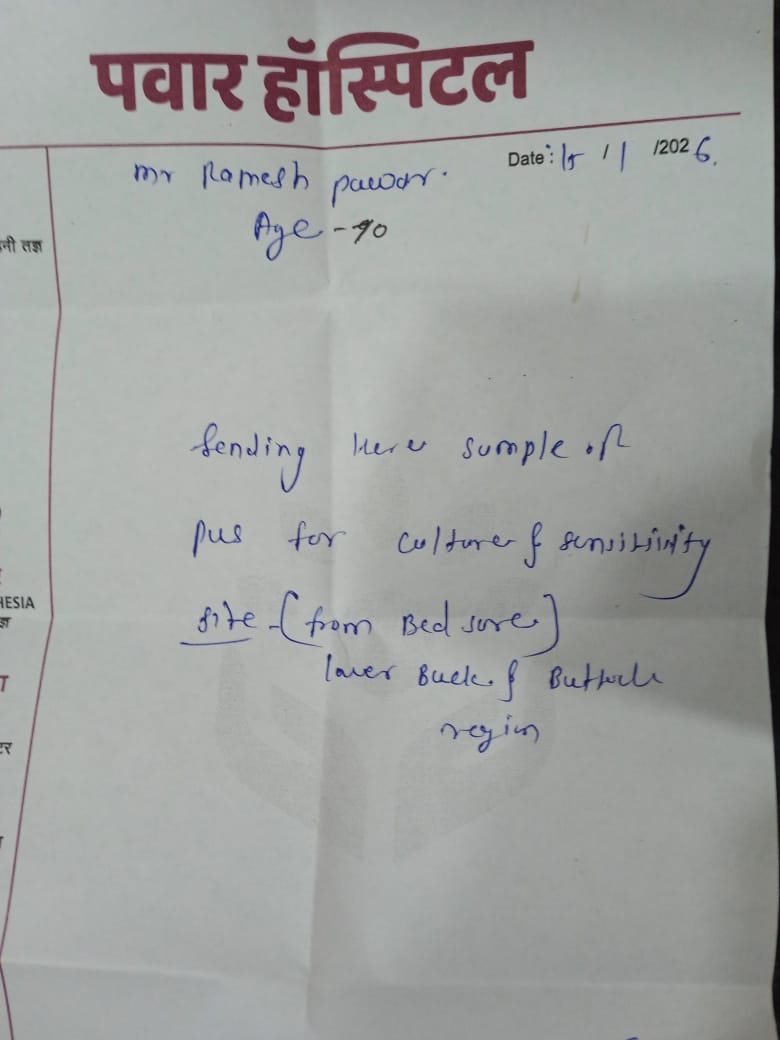 पवार हॉस्पिटल
Date: 15 / 1 /2026.
Mr Ramesh pawar.
Age - 90
नी तज्ञ
Sending Here sample of
pus for culture & sensitivity
HESIA
site - (from Bed sore)
lower Back & Buttock
region